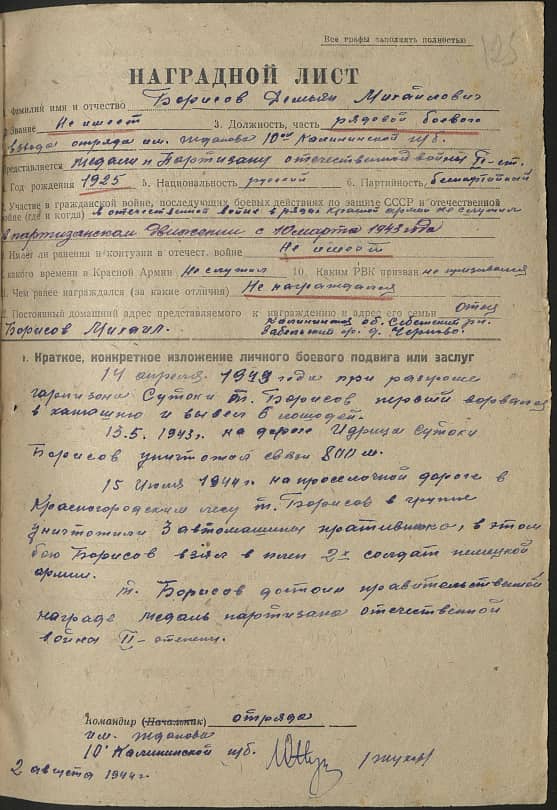 Все графы заполнять полностью
125
НАГРАДНОЙ ЛИСТ
Фамилия имя и отчество Борисов Демьян Михайлович
2. Звание Не имеет 3. Должность, часть рядовой боевого
взвода отряда им. Жданова 10ой Калининской п/б.
Представляется медали „Партизану отечественной войны" II-ст.
Год рождения 1925 5. Национальность русский 6. Партийность, беспартийный
Участие в гражданской войне, последующих боевых действиях по защите СССР и отечественной
войне (где и когда) в отечественной войне в рядах красной армии не служил
в партизанском движении с 10 марта 1943 года
Имеет ли ранения и контузии в отечест. войне Не имеет
какого времени в Красной Армии Не служил 10. Каким РВК призван не призывался
Чем ранее награждался (за какие отличия) Не награждался
Постоянный домашний адрес представляемого к награждению и адрес его семьи Отец
Борисов Михаил. Калининская об. Себежский р-н.
д. Черново.
I. Краткое, конкретное изложение личного боевого подвига или заслуг
14 апреля 1943 года при разгроме
гарнизона Сутоки т. Борисов первый ворвался
в конюшню и вывел 6 лошадей.
13.5. 1943г. на дороге Идрица Сутоки
Борисов уничтожил связи 800 м.
15 Июля 1944г. на проселочной дороге в
Красногородском лесу т. Борисов в группе
уничтожили 3 автомашины противника, в этом
бою Борисов взял в плен 2х солдат немецкой
армии.
т. Борисов достоин правительственной
награде медаль партизана отечественной
война II-степени.
Командир (Начальник) отряда
им. Жданова
10й Калининской п/б.
2 августа 1944г.